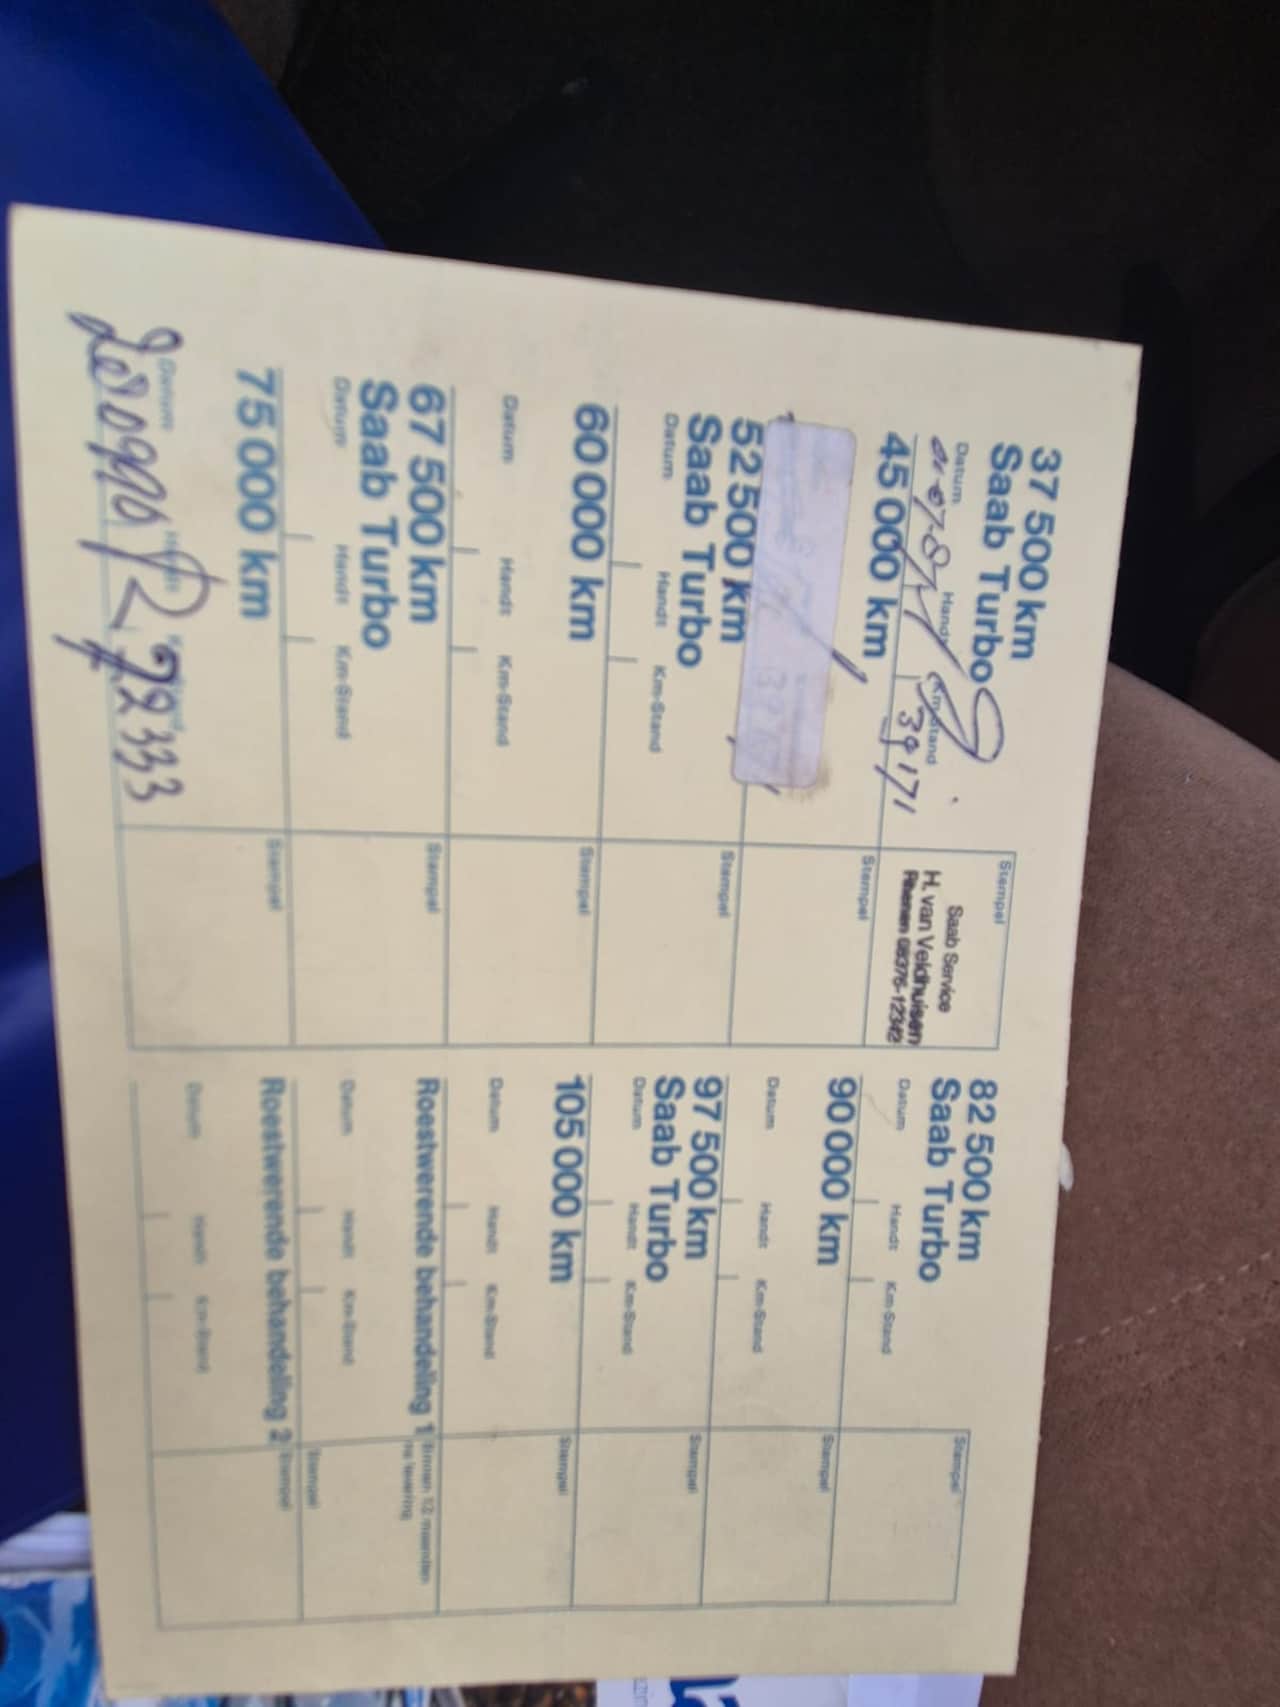 37 500 km
Saab Turbo
Datum Handt Km-Stand
39171
Stempel
Saab Service
H. van Veldhuisen
Rhenen 08376-12342
45 000 km
Stempel
52 500 km
Saab Turbo
Datum Handt Km-Stand
Stempel
60 000 km
Datum Handt Km-Stand
Stempel
67 500 km
Saab Turbo
Datum Handt Km-Stand
Stempel
75 000 km
Datum
72333
Stempel
82 500 km
Saab Turbo
Datum Handt Km-Stand
Stempel
90 000 km
Datum Handt Km-Stand
Stempel
97 500 km
Saab Turbo
Datum Handt Km-Stand
Stempel
105 000 km
Datum Handt Km-Stand
Stempel
Roestwerende behandeling 1 Binnen 12 maanden
na levering
Datum Handt Km-Stand
Stempel
Roestwerende behandeling 2
Datum Handt Km-Stand
Stempel